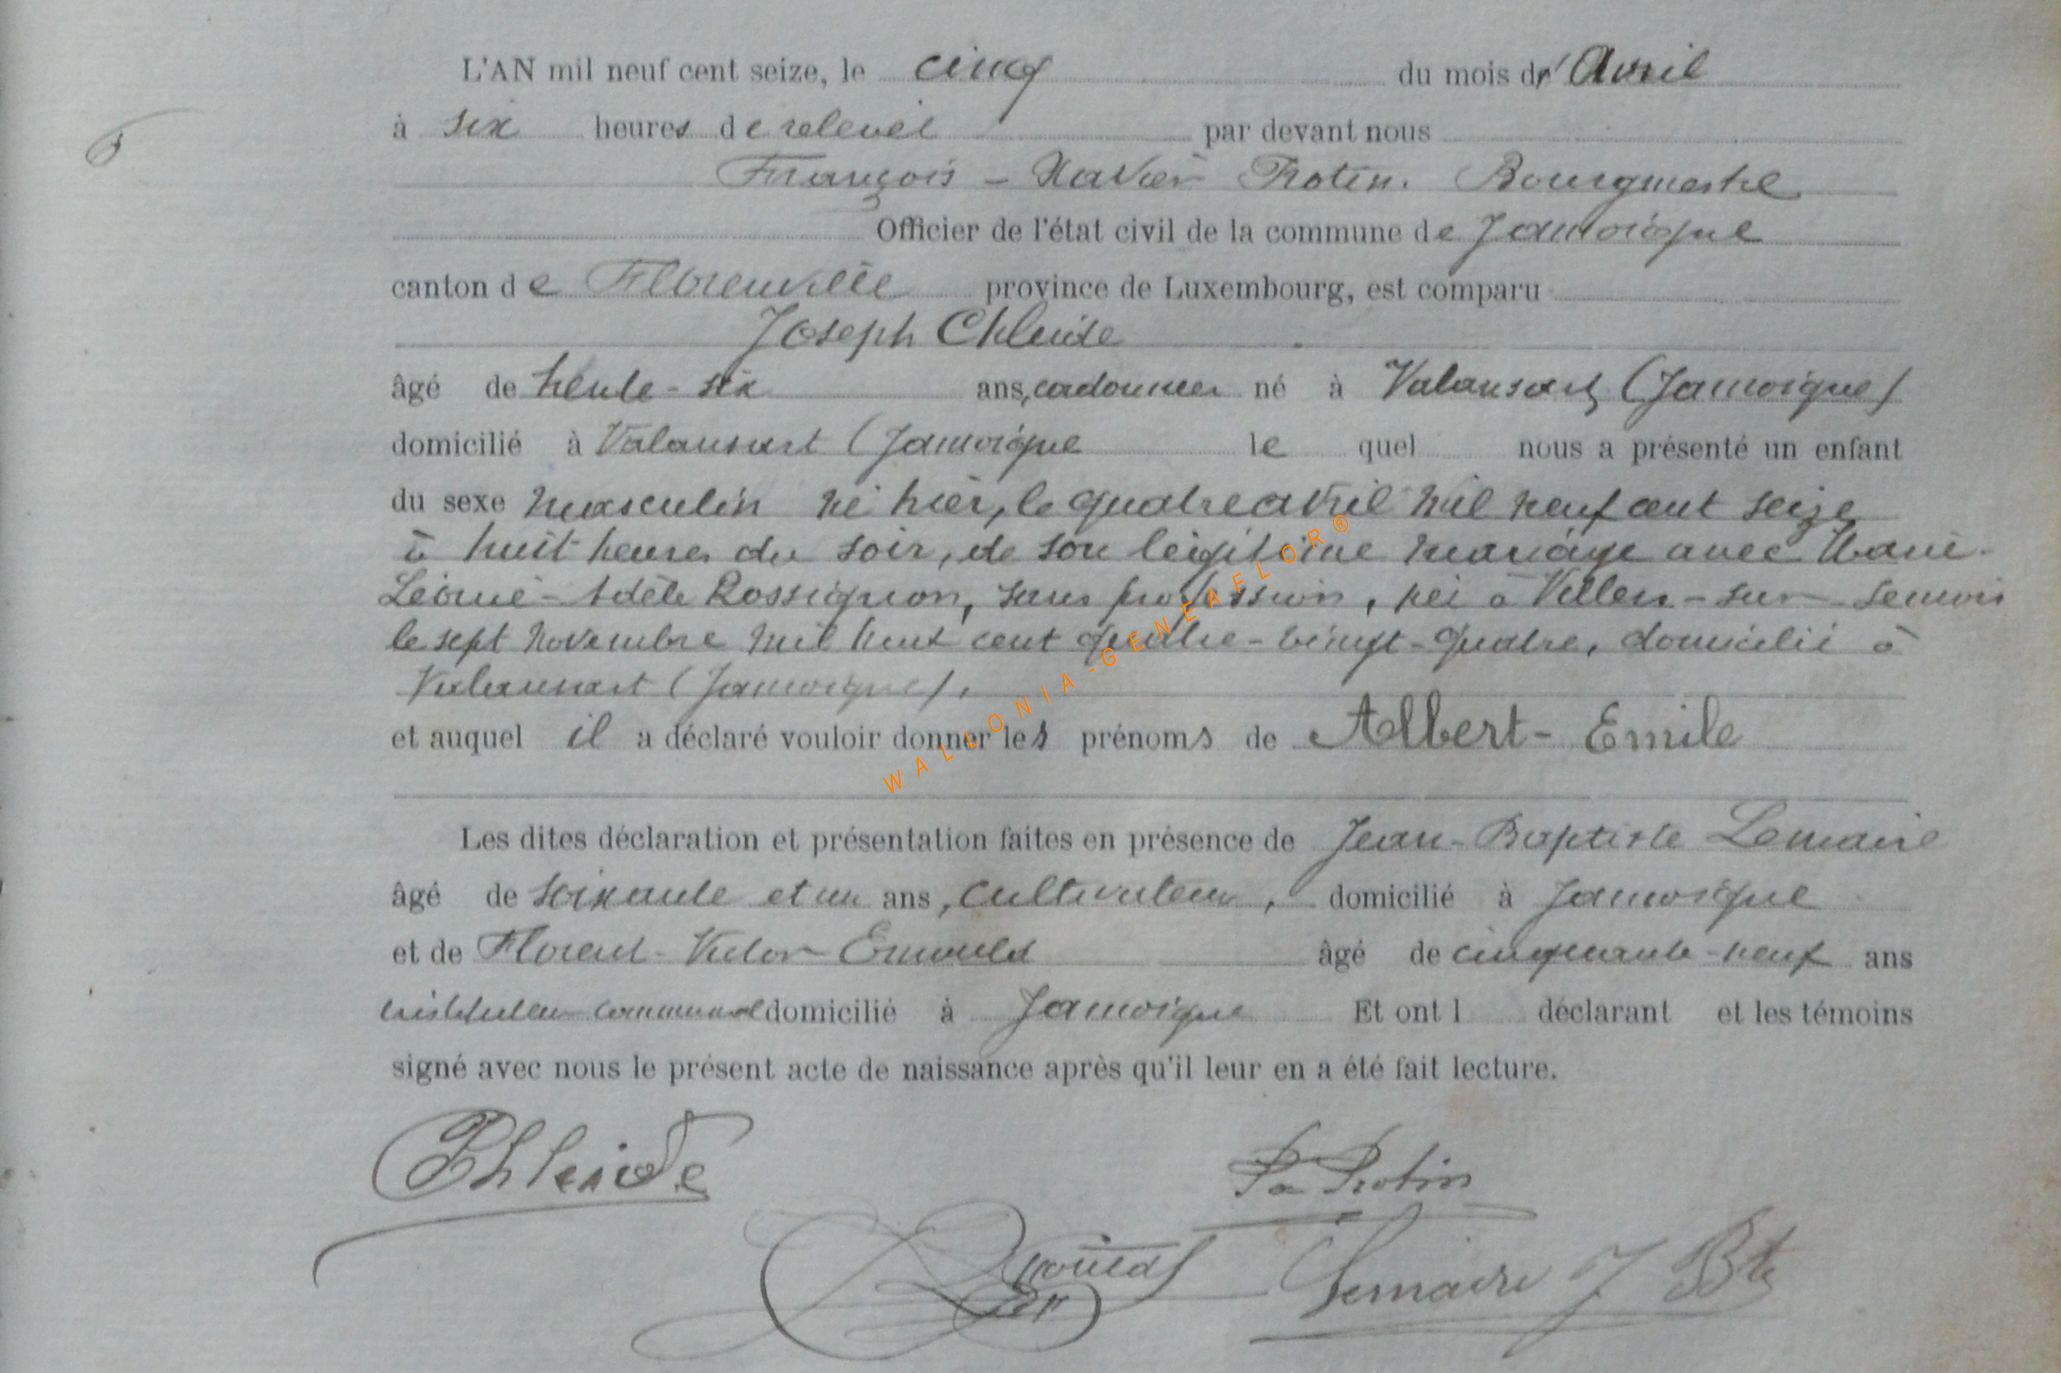 L'AN mil neuf cent seize, le cinq du mois d' Avril
à six heures de relevée par devant nous
François - Xavier Protin. Bourgmestre
6
Officier de l'état civil de la commune de Jamoigne
canton de Florenville province de Luxembourg, est comparu
Joseph Chleide
âgé de trente-six ans, cordonnier né à Valansart (Jamoigne)
domicilié à Valansart (Jamoigne le quel nous a présenté un enfant
du sexe masculin né hier, le quatre avril mil neuf cent seize
à huit heures du soir, de son légitime mariage avec Marie-
Léonie-Adèle Rossignon, sans profession, née à Villers-sur-Semois
le sept novembre mil huit cent quatre-vingt-quatre, domicilié à
Valansart (Jamoigne),
et auquel il a déclaré vouloir donner les prénoms de Albert-Emile
Les dites déclaration et présentation faites en présence de Jean-Baptiste Lemaire
âgé de soixante et un ans, cultivateur, domicilié à Jamoigne
et de Florent-Victor Ernould âgé de cinquante-neuf ans
instituteur communal domicilié à Jamoigne Et ont l déclarant et les témoins
signé avec nous le présent acte de naissance après qu'il leur en a été fait lecture.
Chleide
Protin
Lemaire J Bte
WALLONIA-GENEAFLOR®